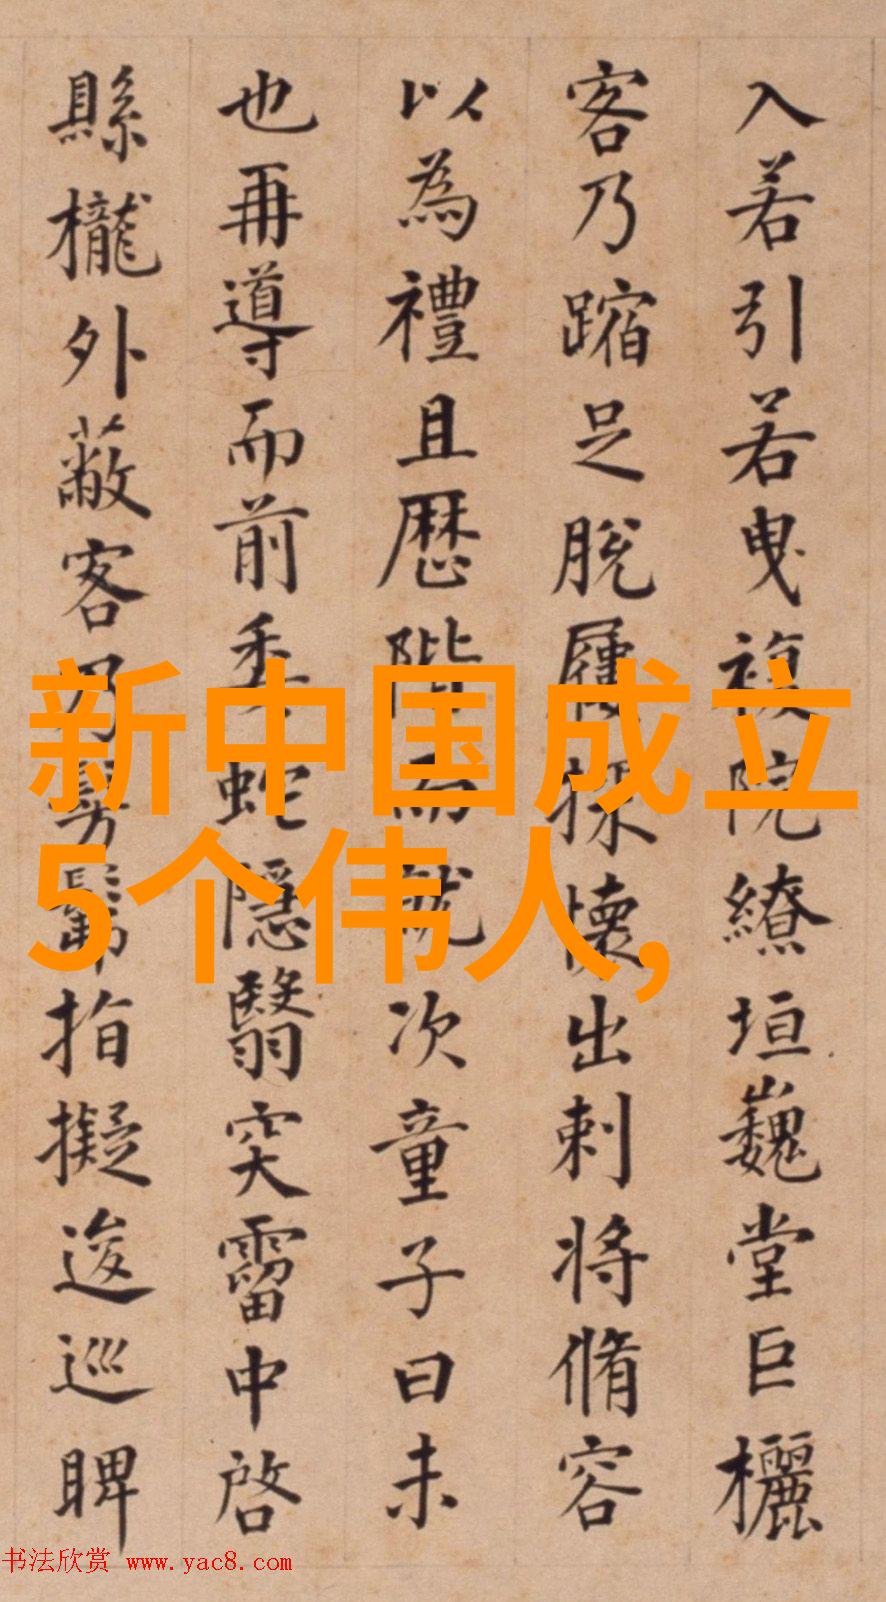 入若引若曳複院繚垣巍堂巨欐
客乃蹜足脫屨探懷出刺將脩容
以為禮且歷階而就次童子曰未
也再導而前委蛇隱翳突霤中啓
縣櫳外蔽客乃髣髴指擬逡巡睥
新中国成立
5个伟人,
书法欣赏 www.yac8.com